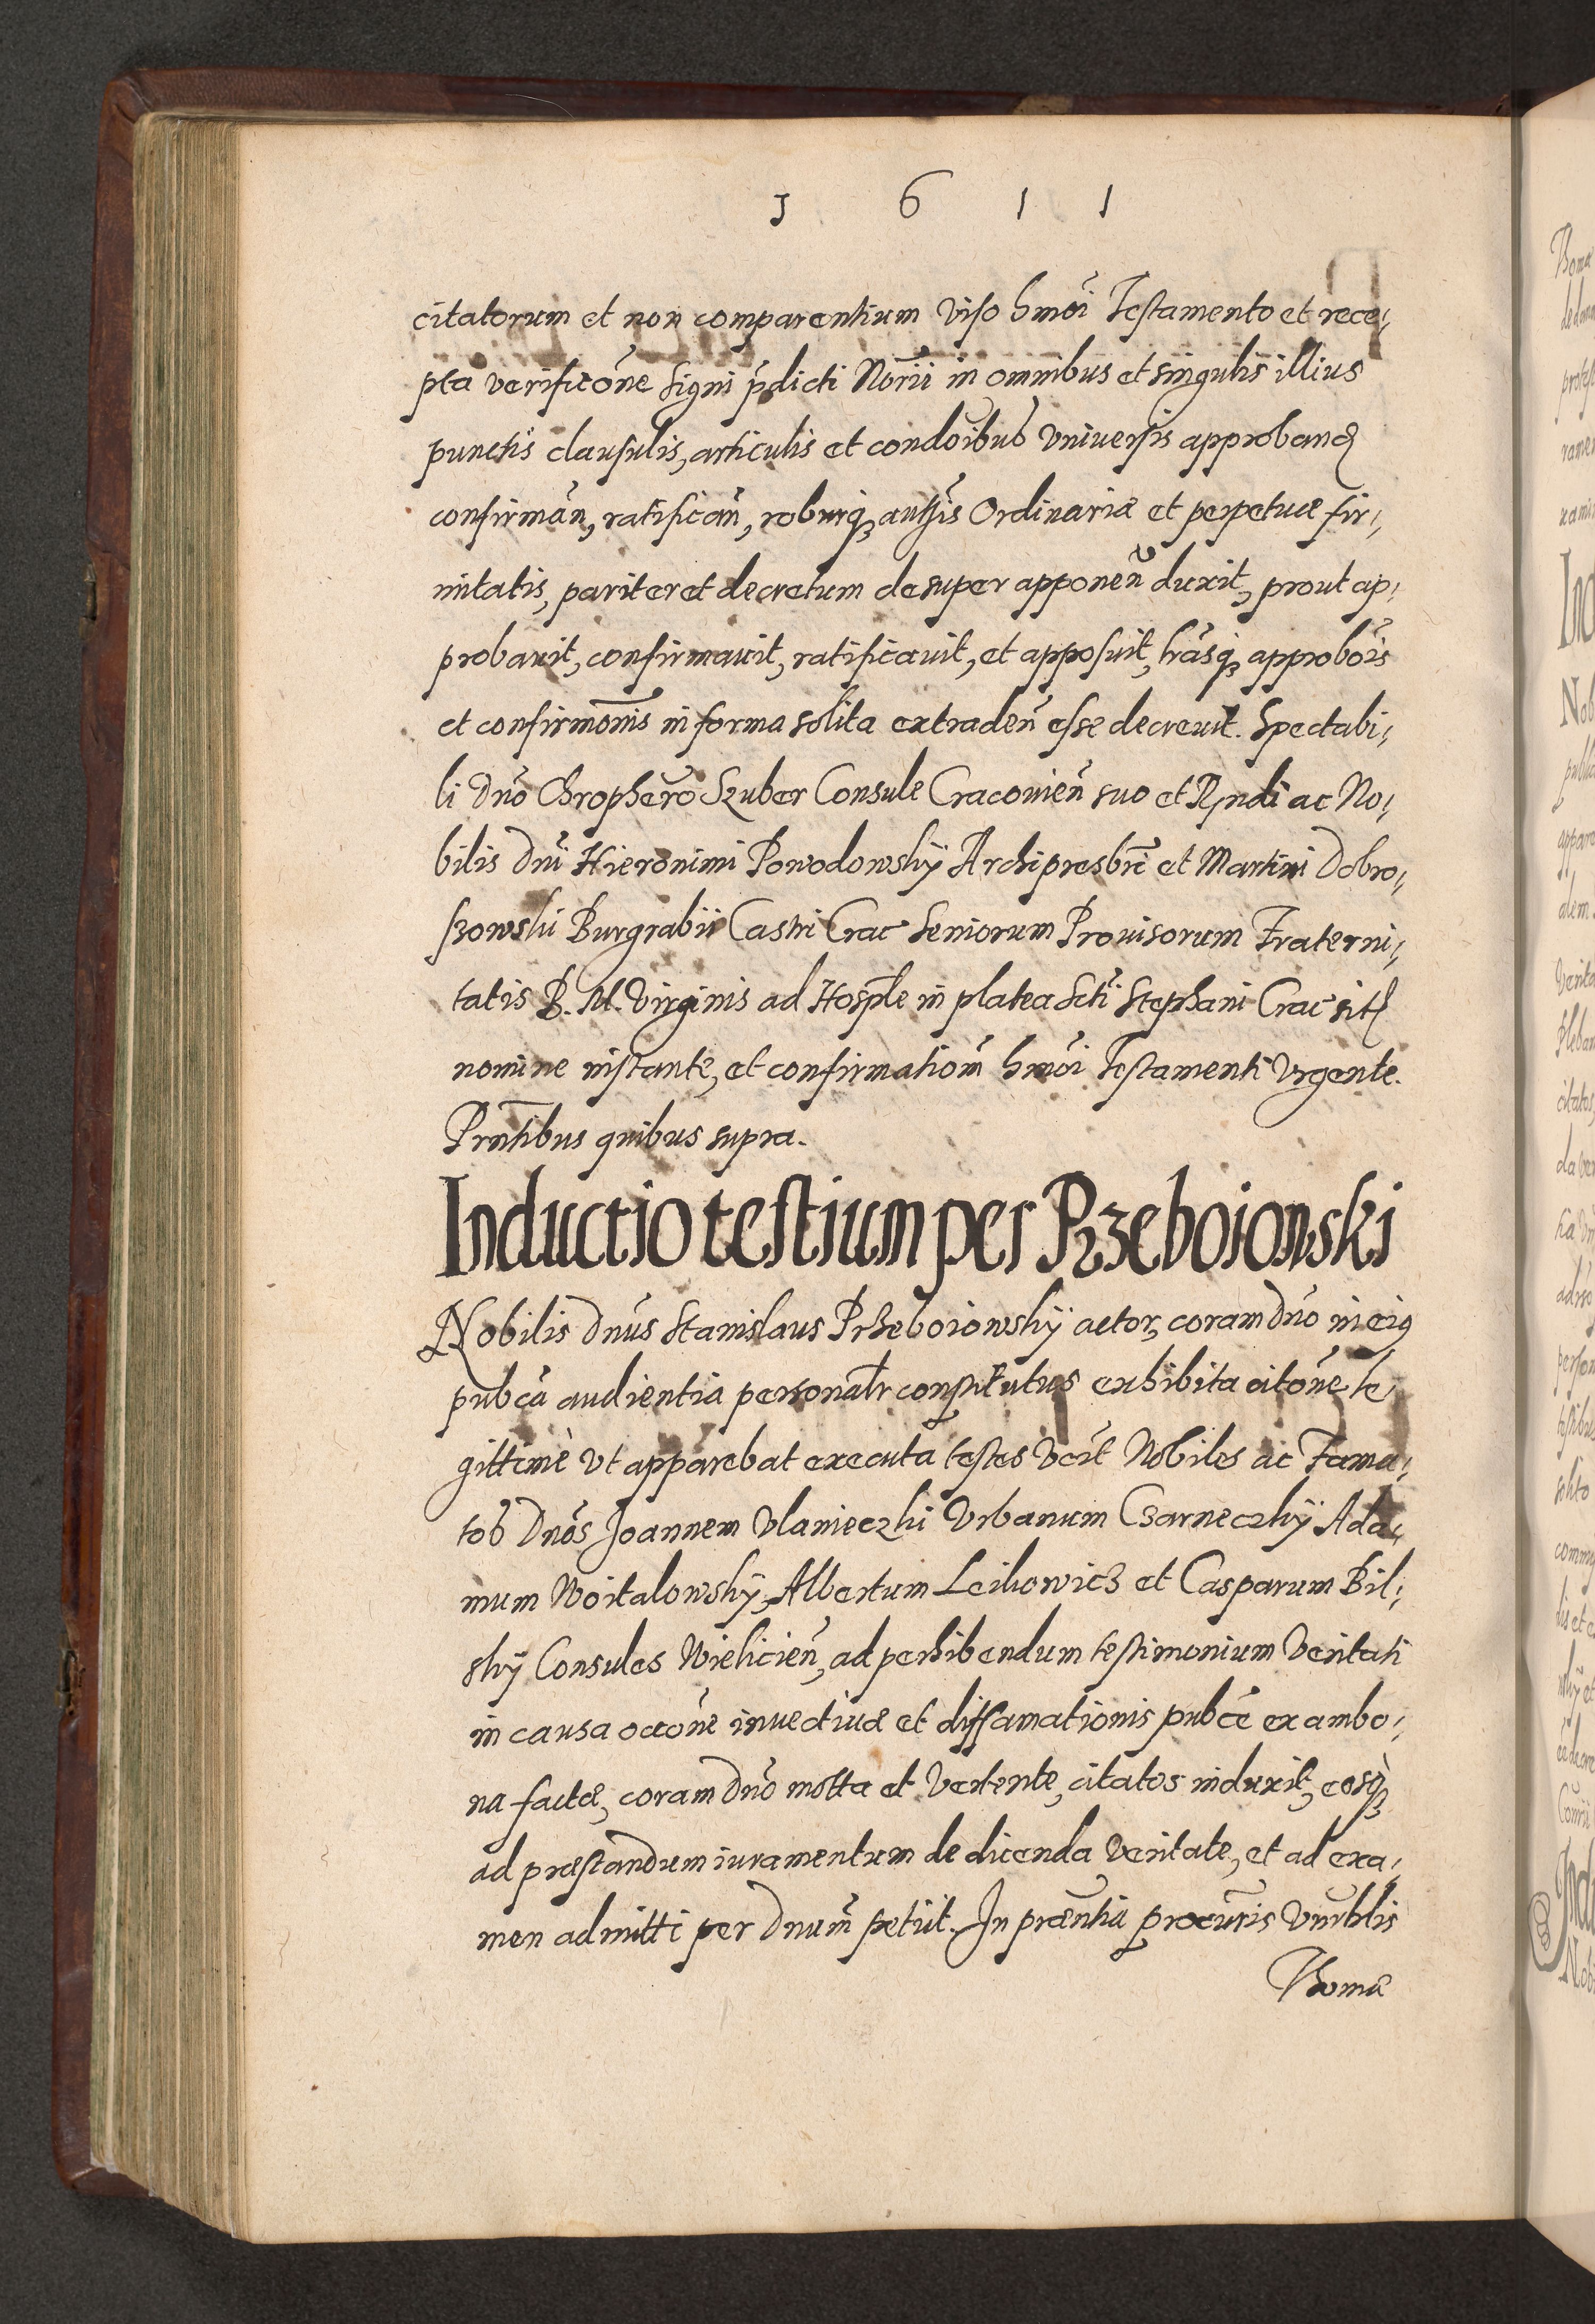 1 6 1 1
citatorum et non comparentium viso hmōi Testamento et rece⸗
pta verificōne signi p̄dicti Nōrii in omnibus et singulis illius
punctis clausulis, articulis et condōibus vniuersis approband
confirmān, ratificān, roburq̨ auttīs Ordinariæ et perpetuæ fir⸗
mitatis, pariter et decretum desuper apponeñ duxit, prout ap⸗
probauit, confirmauit, ratificauit, et apposuit, lrāsq̨ approbōis
et confirmōnis in forma solita extradeñ esse decreuit. Spectabi⸗
li Dnō Chrophero Szuber Consule Cracouień suo et Rndi ac No⸗
bilis Dnī Hieronimi Powodowskÿ Archipresbrī et Martini Dobro⸗
szowski Burgrabii Castri Crac Seniorum Prouisorum Fraterni⸗
tatis B. M. Virginis ad Hosple in platea Scti Stephani Crac sit
nomine instante, et confirmatiōm hmōi Testamenti vrgente.
Prntibus quibus supra.
Inductio testium per Przeboiowski
Nobilis Dnūs Stanislaus Przeboiowskÿ actor, coram Dnō in eiq
pubca audientia personalr constitutus exhibita citōne le⸗
gittimè vt apparebat executa testes vcīt Nobiles ac Fama⸗
tos Dnōs Joannem Vlanieczki Vrbanum Czarneczkÿ Ada⸗
mum Woitalowskÿ, Albertum Leikowicz et Casparum Bil⸗
skÿ Consules Wielicień, ad perhibendum testimonium veritati
in causa occōne inuectiuæ et diffamationis pubcē ex ambo⸗
na factæ, coram Dnō motta et vertente, citatos induxit, eosq̨
ad præstandum iuramentum de dicenda veritate, et ad exa⸗
men admitti per Dnum̄ petiit. In præntia procuris Vnrblis
Thomæ